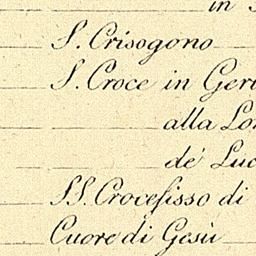 in
S. Crisogono
S. Croce in Ger
alla Lo
de' Luc
SS. Crocefisso di
Cuore di Gesù